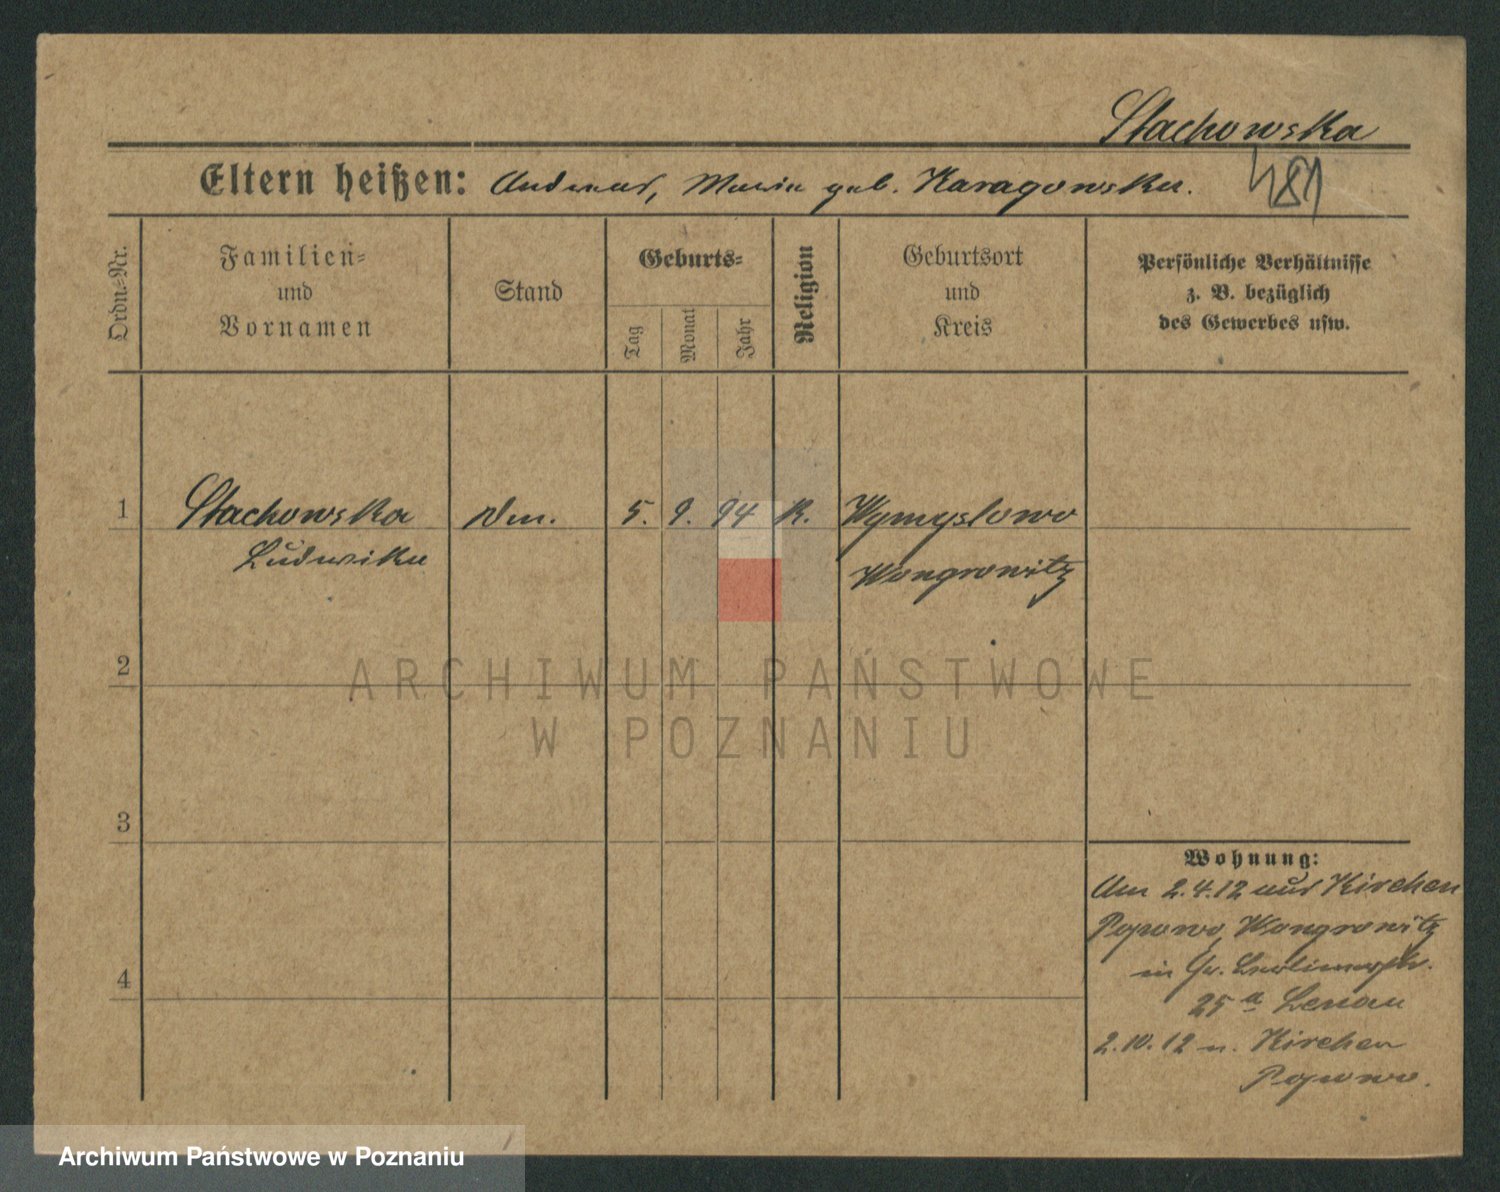 Stachowska
Eltern heißen: Andreas, Maria geb. Karagowska.
481
Ordn.-Nr.
Familien-
und
Vornamen
Stand
Geburts-
Tag
Monat
Jahr
Religion
Geburtsort
und
Kreis
Persönliche Verhältnisse
z. B. bezüglich
des Gewerbes usw.
1 Stachowska 5. 9. 94 K. Wymyslowo
Ludwika Wongrowitz
2
3
4
Wohnung:
Am 2.4.12 aus Kirchen
Popowo, Wongrowitz
in Gr.
25a
2.10.12 n. Kirchen
Popowo.
ARCHIWUM PAŃSTWOWE
W POZNANIU
Archiwum Państwowe w Poznaniu